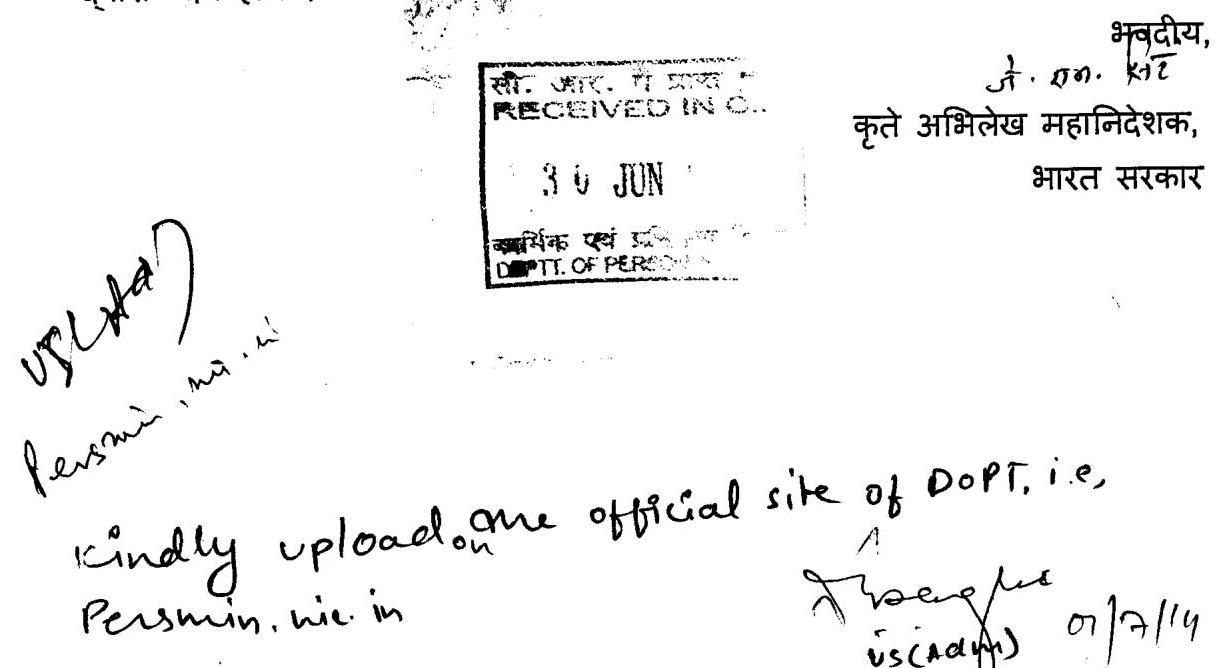 भवदीय,
कृते अभिलेख महानिदेशक,
भारत सरकार
सी. आर. में प्राप्त
RECEIVED IN C..
30 JUN
कार्मिक एवं
DEPTT. OF PERSO
US(Ad)
Persmin.nic.in
Kindly upload on the official site of DOPT, i.e,
Persmin.nic.in
US(Admn)
01/7/14